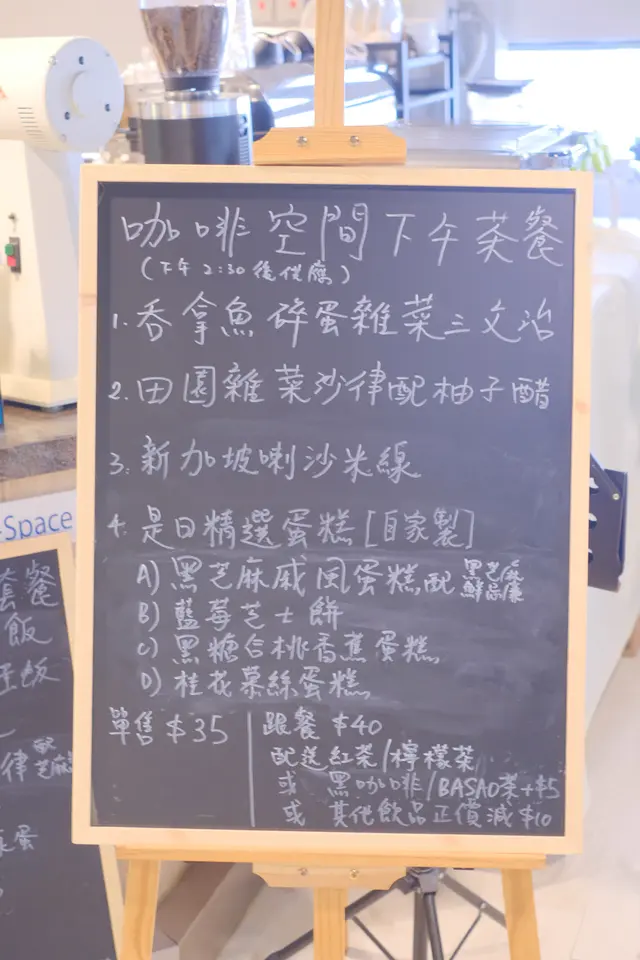 咖啡空間下午茶餐
(下午2:30後供應)
1. 吞拿魚碎蛋雜菜三文治
2. 田園雜菜沙律配柚子醋
3. 新加坡喇沙米線
4. 是日精選蛋糕[自家製]
A) 黑芝麻戚風蛋糕配黑芝麻鮮忌廉
B) 藍莓芝士餅
C) 黑糖合桃香蕉蛋糕
D) 桂花慕絲蛋糕
單售$35
跟餐$40
配送紅茶/檸檬茶
或 黑咖啡/BASAO茶+$5
或 其他飲品正價減$10
-Space
套餐
飯
飯
律配芝麻
蛋